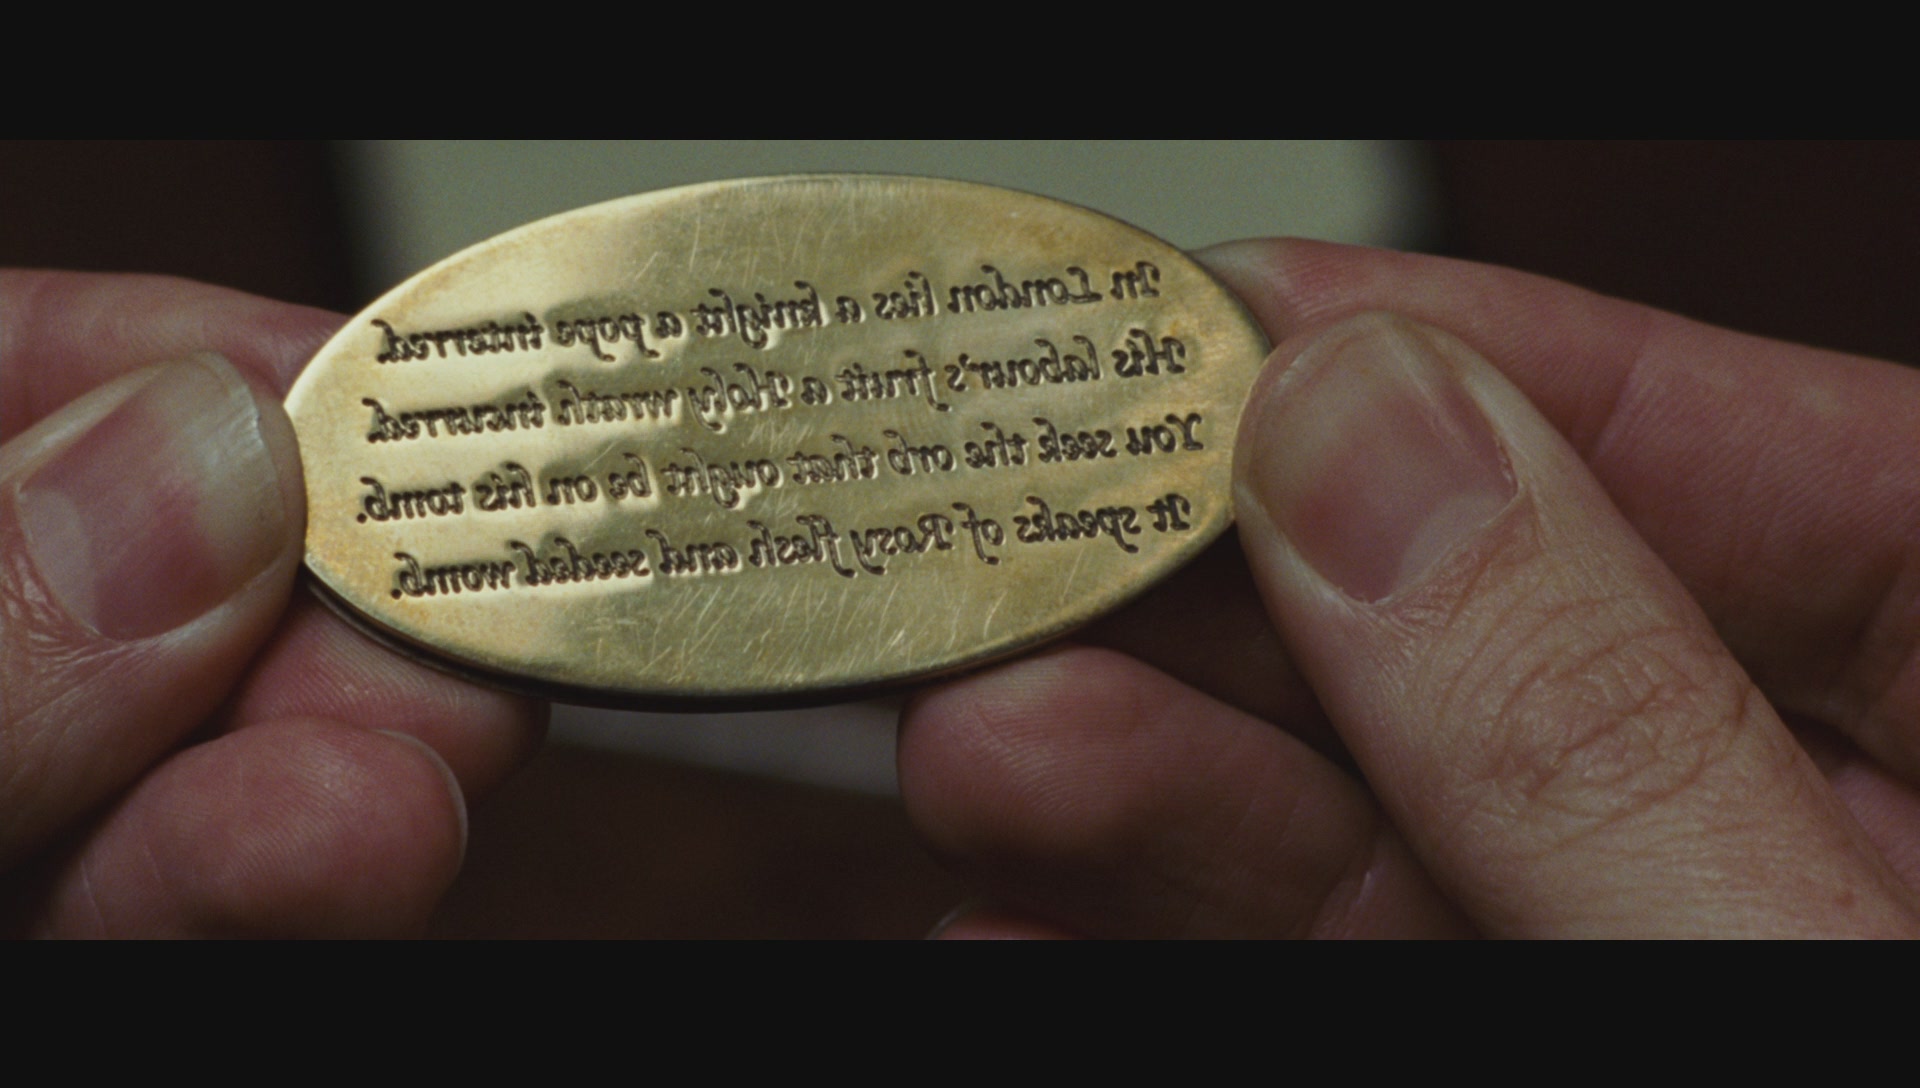 In London lies a knight a pope interred.
His labour's fruit a Holy wrath incurred.
You seek the orb that ought be on his tomb.
It speaks of Rosy flesh and seeded womb.